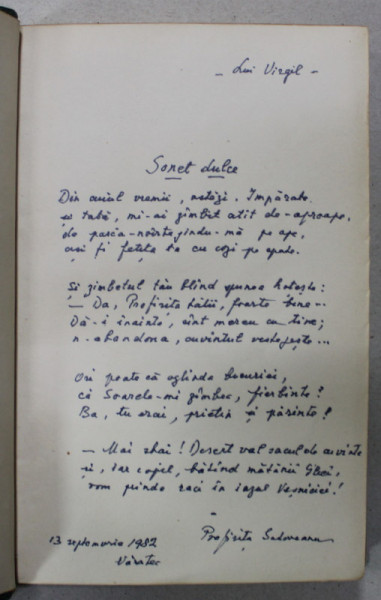 - Lui Virgil -
Sonet dulce
Din anul vremii, Împărate
cu tată, mi-ai zîmbit atît de-aproape,
de parcă-ntorcîndu-mă pe ape,
aș fi fetița ta cu cozi pe spate.
Și zîmbetul tău blînd spunea
— Da, Profirița tatii, foarte bine...
Dă-i înainte, sînt mereu cu tine;
n-abandona, cuvîntul vestejește...
Ori poate că oglinda bucuriei,
că Soarele-mi zîmbea, fierbinte?
Ba, tu erai, prieten și părinte!
— Mai stai! Deșert val sacul de cuvinte
și, iar copil, bătînd mătănii Gliei,
vom prinde raci în iazul Veșniciei!
13 septembrie 1982
Văratec
Profirița Sadoveanu